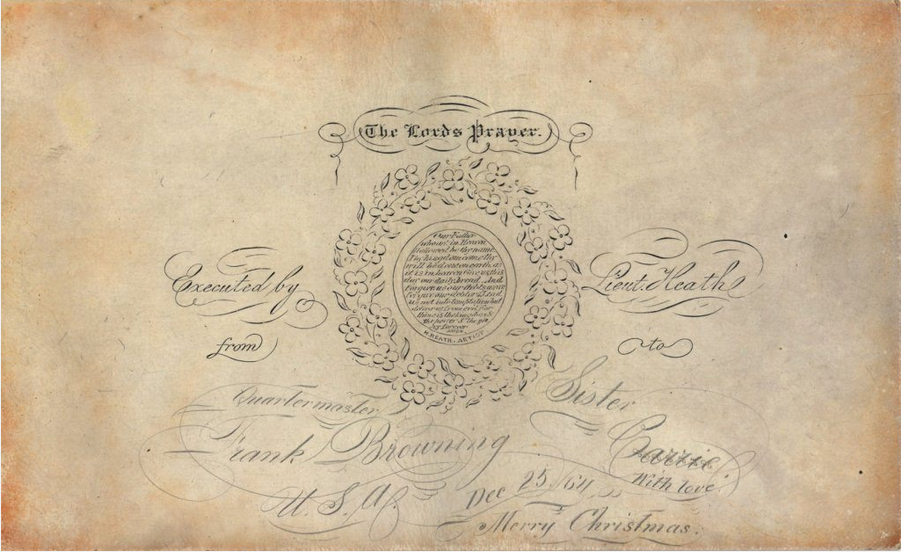 The Lords Prayer.
Our Father
who art in Heaven
Hallowed be thy name
Thy kingdom come Thy
will be done on earth as
it is in heaven Give us this
day our daily bread, And
forgive us our debts as we
forgive our debtors Lead
us not into temptation but
deliver us from evil For
thine is the kingdom &
the power & the glory
forever
Amen.
H. HEATH. ARTIST
Executed by Lieut. Heath
from to
Quartermaster Sister
Frank Browning Carrie
U. S. A. With love
Dec 25. /64
Merry Christmas.